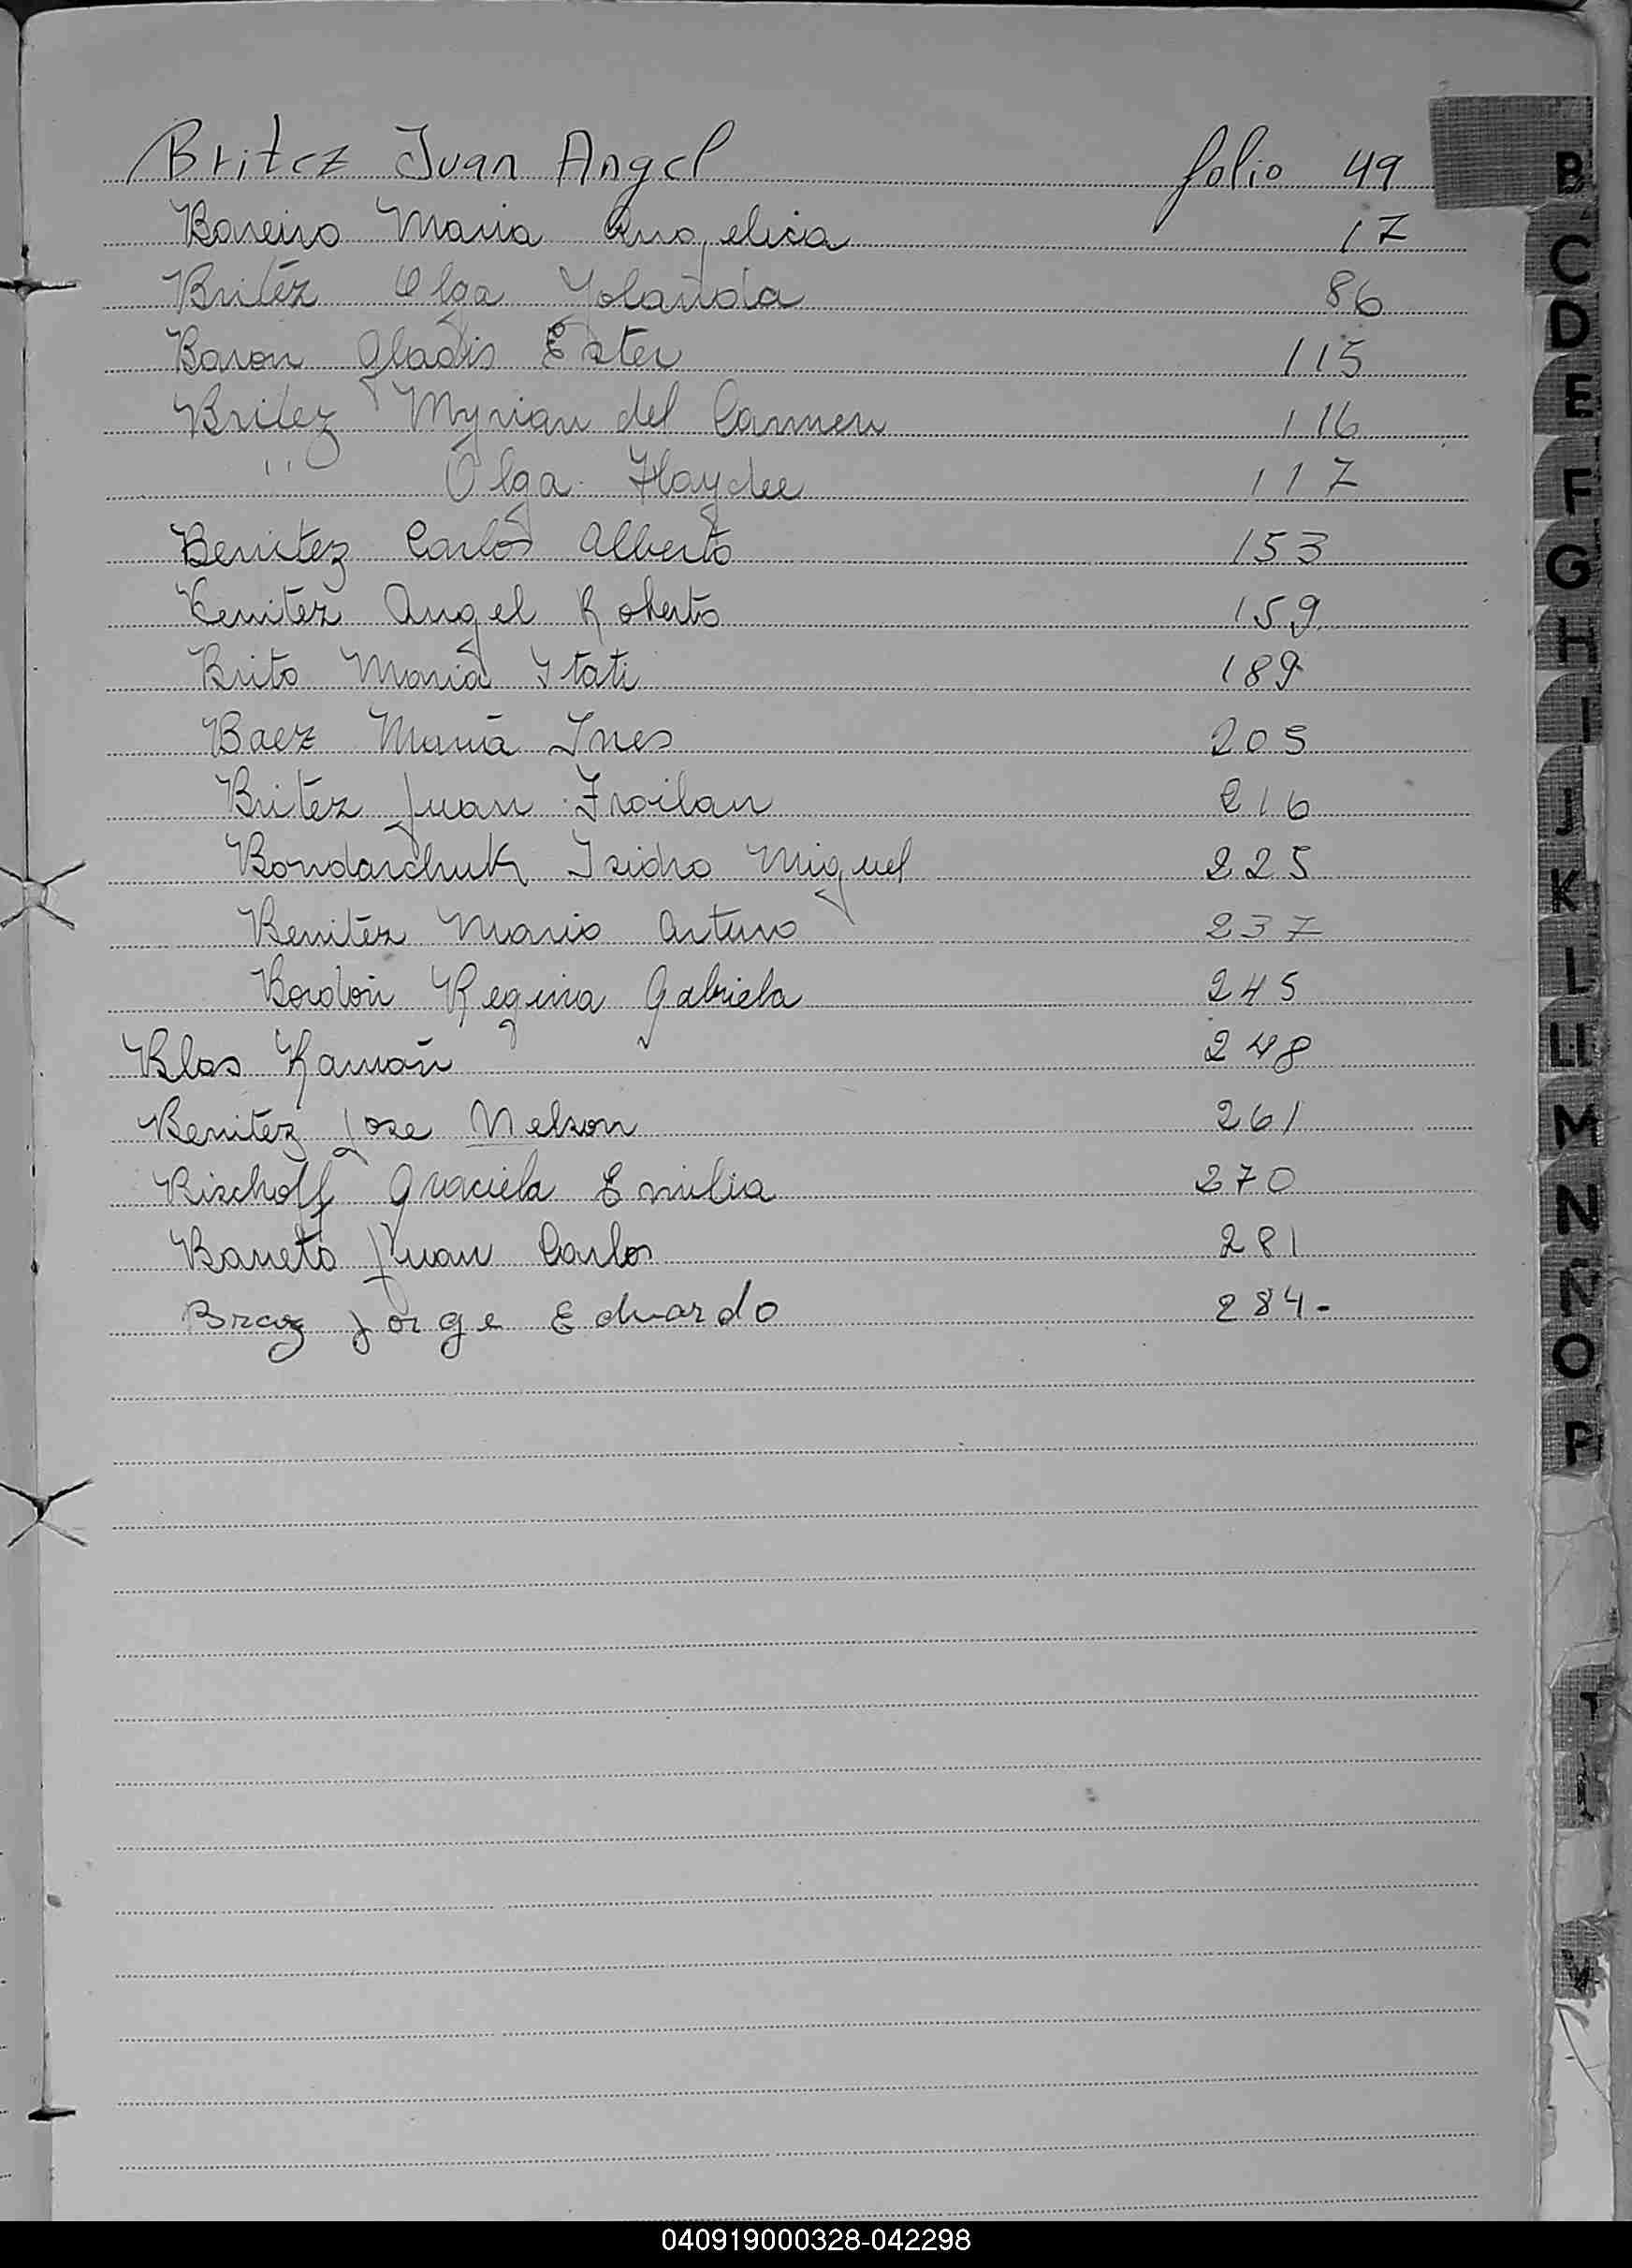 Britez Juan Angel folio 49
Boreiro Maria Angelica 17
Britéz Olga Yolanda 86
Baron Gladis Ester 115
Britez Myrian del Carmen 116
" Olga Haydee 117
Benitez Carlos Alberto 153
Benitez Angel Roberto 159
Brito Maria Itati 189
Baez Maria Ines 205
Britez Juan Froilan 216
Bondarchuk Isidro Miguel 225
Benitez Mario Arturo 237
Bordón Regina Gabriela 245
Blas Ramón 248
Benitez Jose Nelson 261
Bischoff Graciela Emilia 270
Barreto Juan Carlos 281
Braz Jorge Eduardo 284-
B
C
D
E
F
G
H
I
J
K
L
LL
M
N
Ñ
O
P
T
V
040919000328-042298